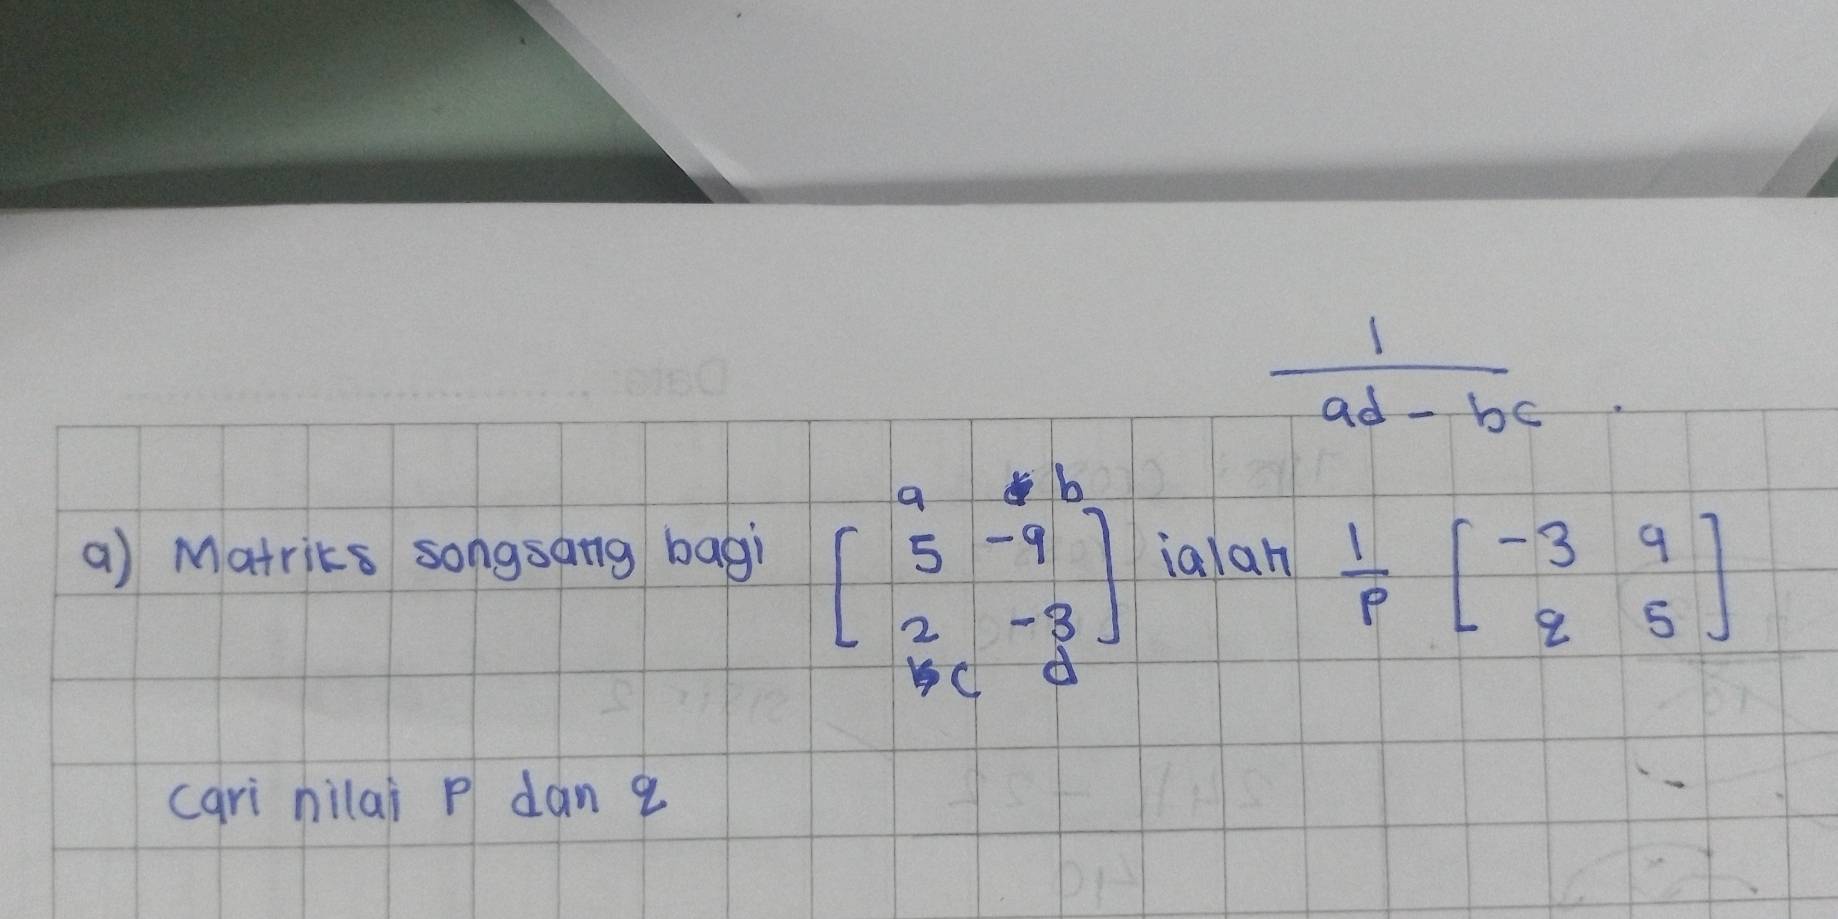 1
ad - bc
a b
a) Matriks songsang bagi [ 5 -9 ] ialah 1/P [ -3 9 ]
[ 2 -3 ] [ q 5 ]
c d
cari nilai P dan q